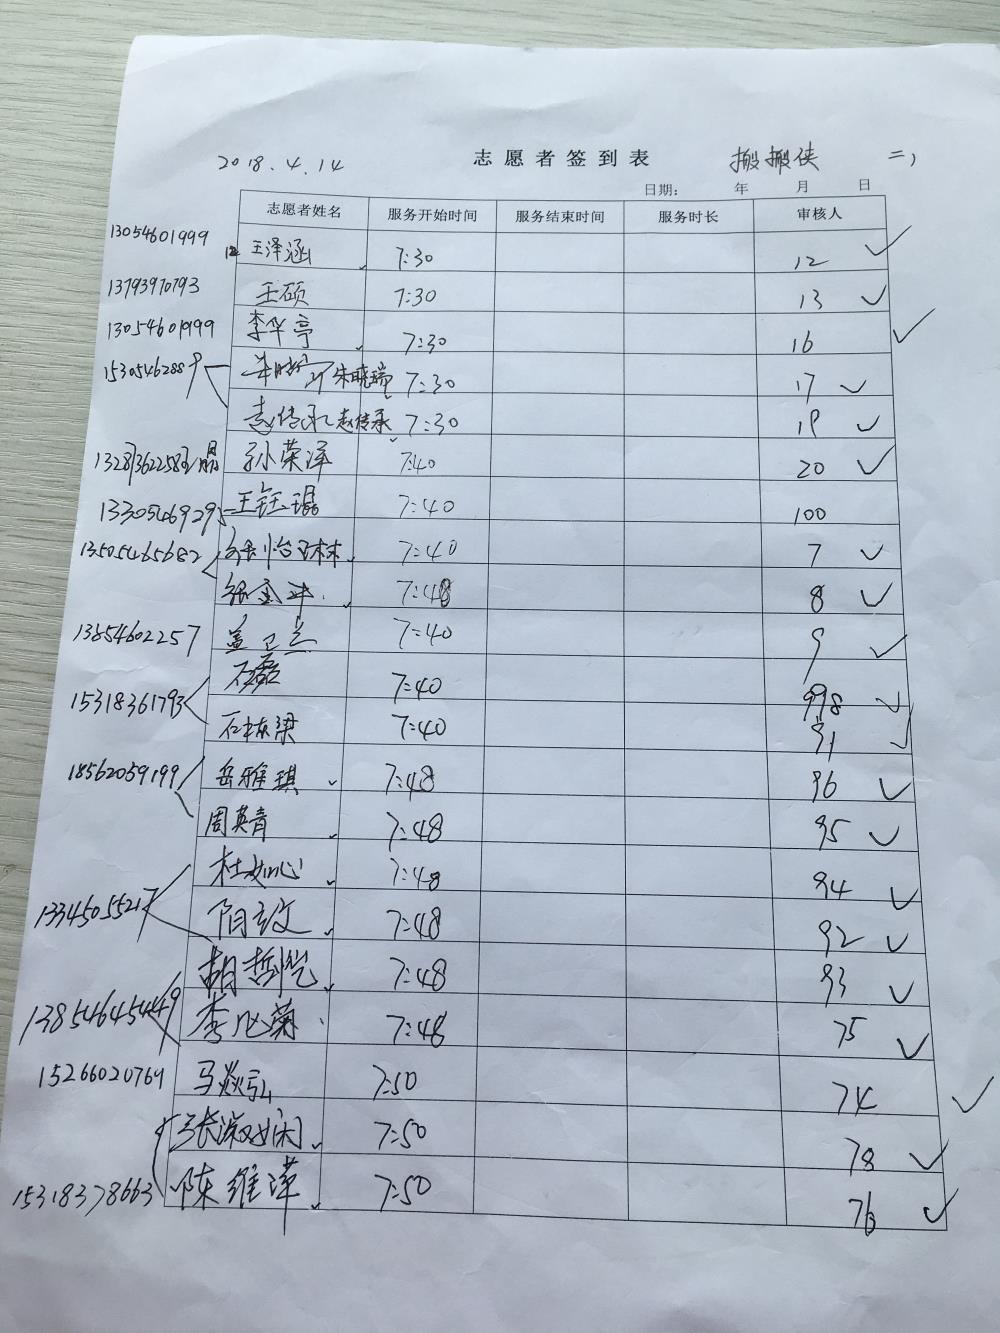 2018.4.14 志愿者签到表 搬搬侠 二,
日期: 年 月 日
志愿者姓名 服务开始时间 服务结束时间 服务时长 审核人
13054601999 12 王泽涵 7:30 12 ✓
13793970793 王硕 7:30 13 ✓
13054601999 李华亭 7:30 16 ✓
15305462889 朱晓瑞 7:30 17 ✓
赵传承 赵传承 7:30 19 ✓
孙荣泽 7:40 20 ✓
王钰琨 7:40 100
13505465682 7:40 7 ✓
张金冲 7:48 8 ✓
13854602257 盖卫兰 7:40 9 ✓
15318361793 石磊 7:40 998 ✓
石栋梁 7:40 91 ✓
18562059199 岳雅琪 7:48 96 ✓
周英青 7:48 95 ✓
杜如心 7:48 94 ✓
13345055217 阴文 7:48 92 ✓
胡哲恺 7:48 93 ✓
13854645449 李旭菊 7:48 75 ✓
15266020769 马焱弘 7:50 74 ✓
张淑娴 7:50 78 ✓
15318378663 陈维泽 7:50 76 ✓